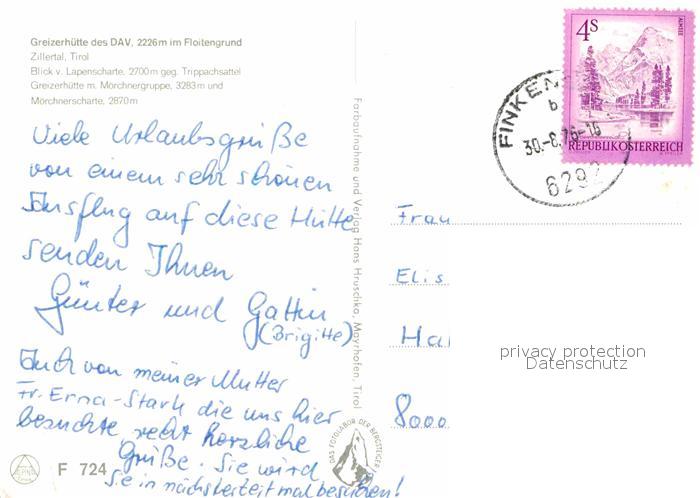 Greizerhütte des DAV, 2226m im Floitengrund
Zillertal, Tirol
Blick v. Lapenscharte, 2700m geg. Trippachsattel
Greizerhütte m. Mörchnergruppe, 3283m und
Mörchnerscharte, 2870m
Viele Urlaubsgrüße
von einem sehr schönen
Ausflug auf diese Hütte
senden Ihnen
Günter und Gattin
(Brigitte)
Auch von meiner Mutter
Fr. Erna-Stark die uns hier
besuchte recht herzliche
Grüße. Sie wird
Sie in nächster Zeit mal besuchen!
F 724
Farbaufnahme und Verlag Hans Hruschka, Mayrhofen, Tirol
DAS FOTOLABOR DER BERGSTEIGER
4s
ALMSEE
REPUBLIK ÖSTERREICH
FINKEN
b
30.-8.76-16
6292
Frau
Elis
Hal
8000
privacy protection
Datenschutz